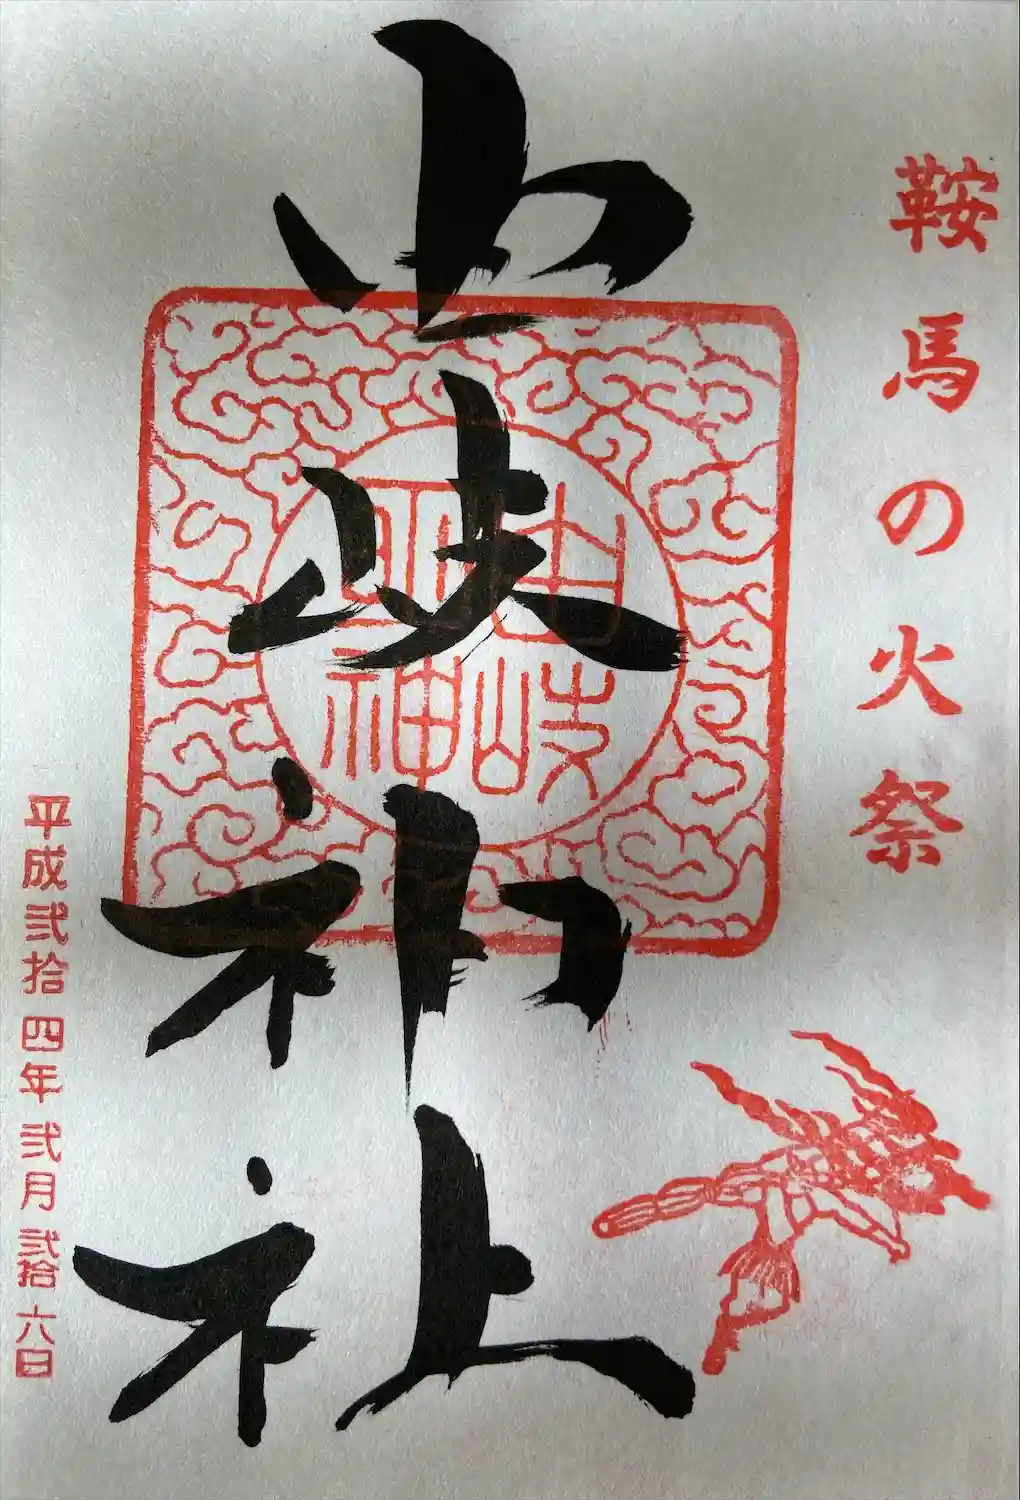 鞍馬の火祭
由岐神社
由岐
明神
平成弐拾四年弐月弐拾六日